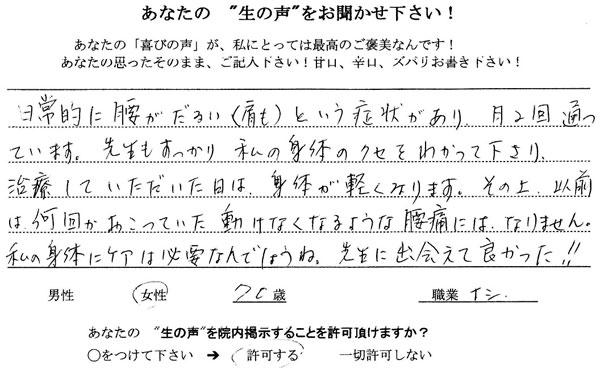 あなたの ”生の声”をお聞かせ下さい！
あなたの「喜びの声」が、私にとっては最高のご褒美なんです！
あなたの思ったそのまま、ご記入下さい！甘口、辛口、ズバリお書き下さい！
日常的に腰がだるい（肩も）という症状があり、月2回通っ
ています。先生もすっかり私の身体のクセをわかって下さり、
治療していただいた日は、身体が軽くなります。その上、以前
は何回かおこっていた動けなくなるような腰痛にはなりません。
私の身体にケアは必要なんでしょうね。先生に出会えて良かった!!
男性 女性 70歳 職業 ナシ.
あなたの ”生の声”を院内掲示することを許可頂けますか？
○をつけて下さい → 許可する 一切許可しない